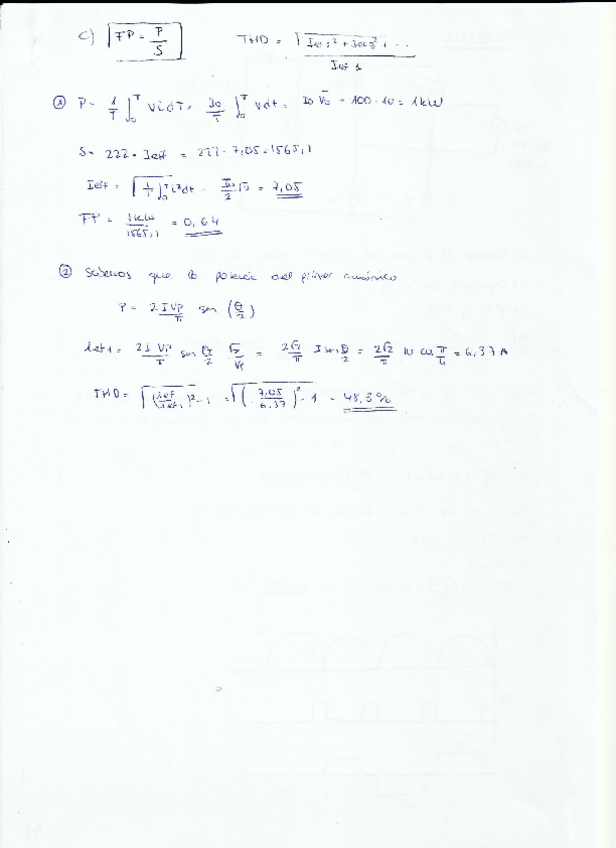 c) FP = P/S THD = √(Ief2² + Ief3² + ...) / Ief1
① P = 1/T ∫₀ᵀ v i dT = Io/T ∫₀ᵀ v dt = Io V̄o = 100 · 10 = 1kW
S = 222 · Ieff = 222 · 7,05 = 1565,1
Ieff = √(1/T ∫₀ᵀ i² dt) = Io/2 √2 = 7,05
FP = 1kW/1565,1 = 0,64
② Sabemos que la potencia del primer armónico
P = 2IVp/π sen (θ/2)
Ief1 = 2IVp/π sen θ/2 √2/Vp = 2√2/π I sen θ/2 = 2√2/π 10 cos π/4 = 6,37 A
THD = √((Ief/Ief1)² - 1) = √((7,05/6,37)² - 1) = 48,3%